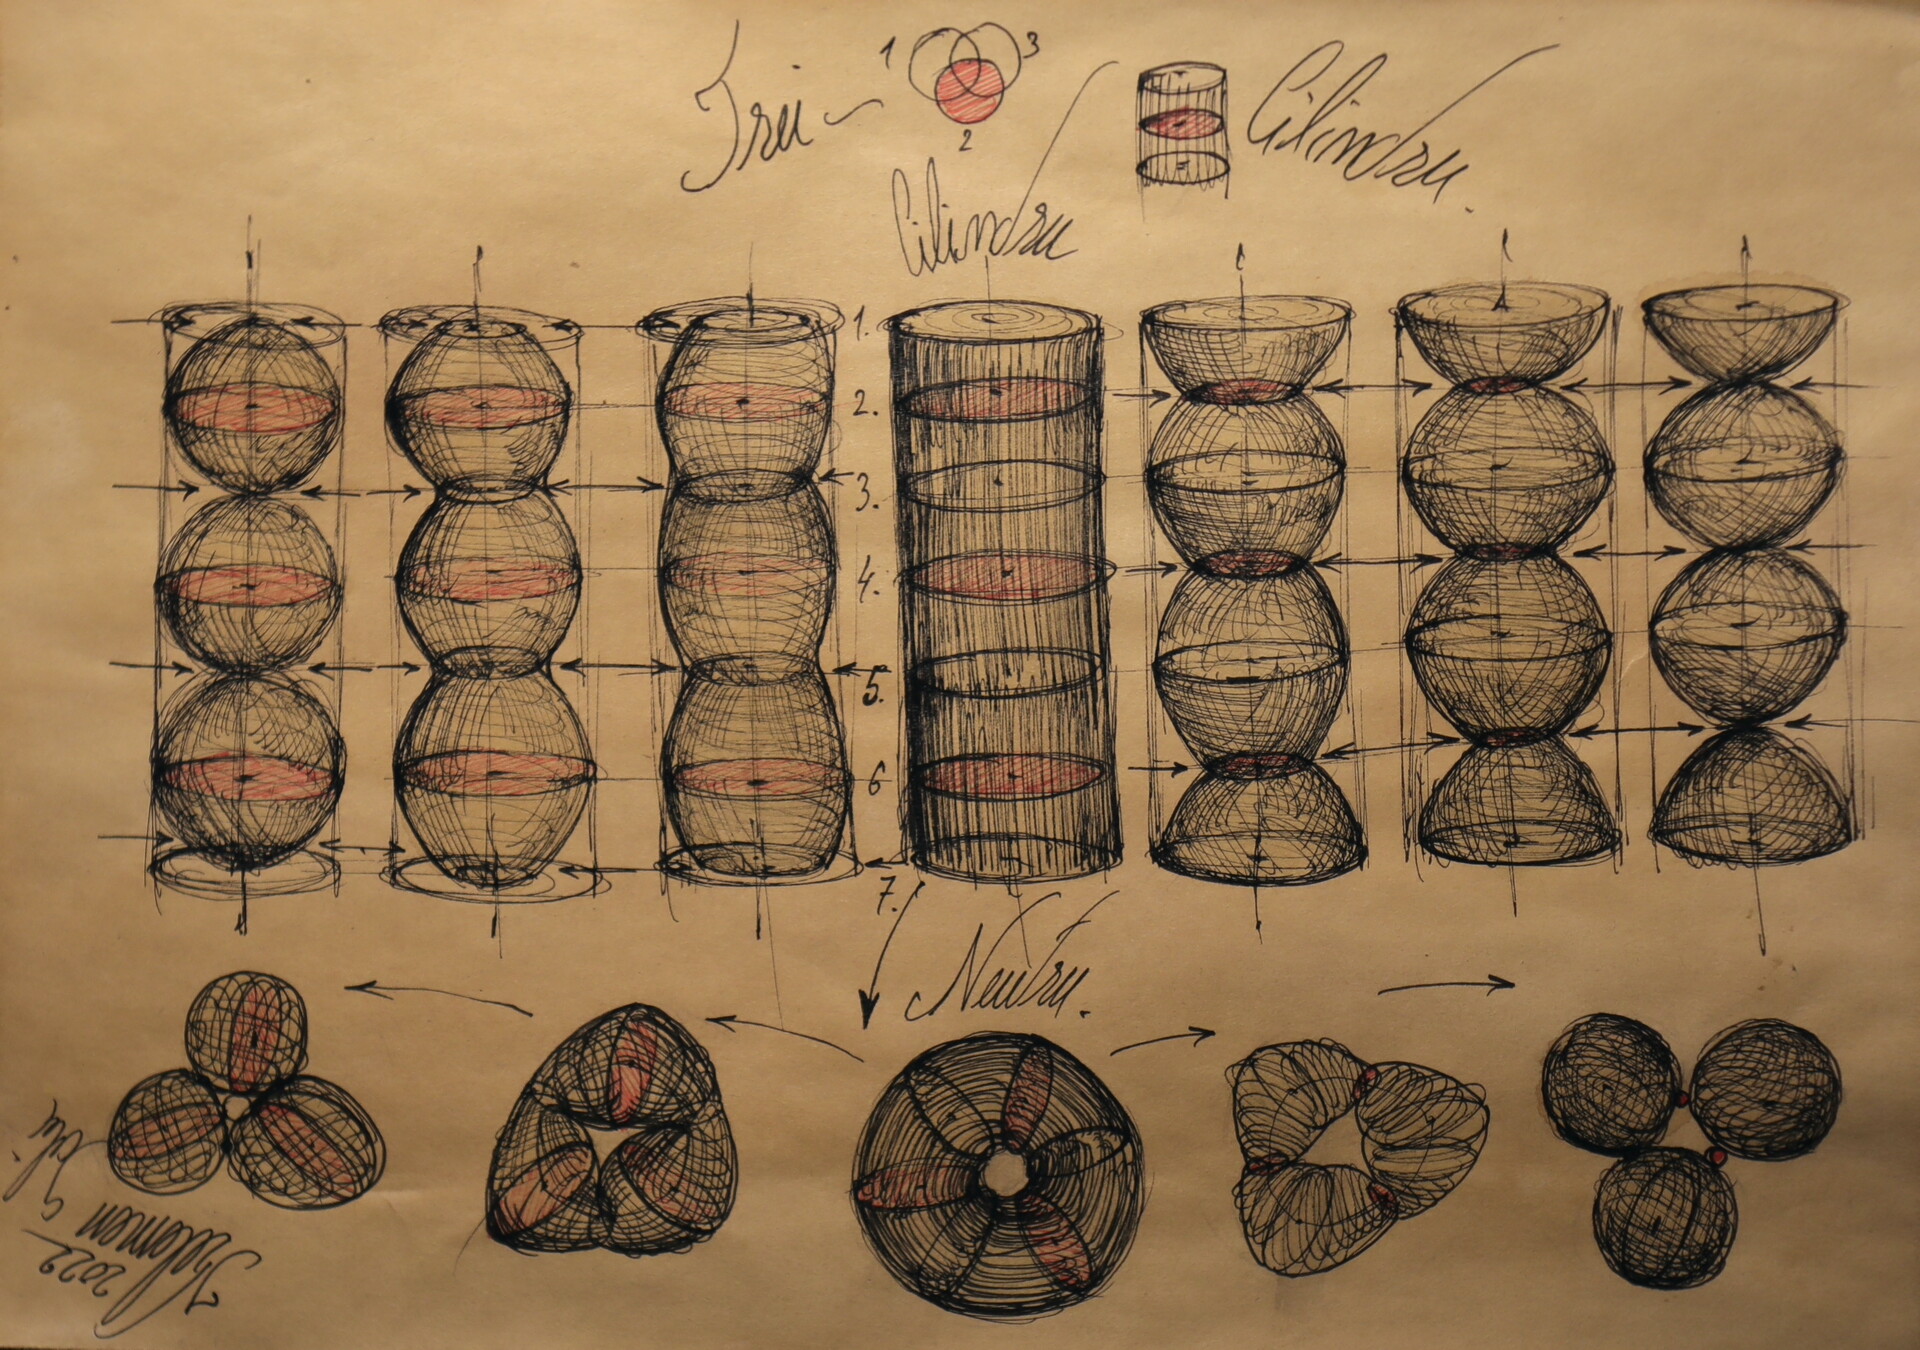 Tru-
1 3
2
Cilindru.
Cilindru
1.
2.
3.
4.
5.
6
7.
Neutru.
2022